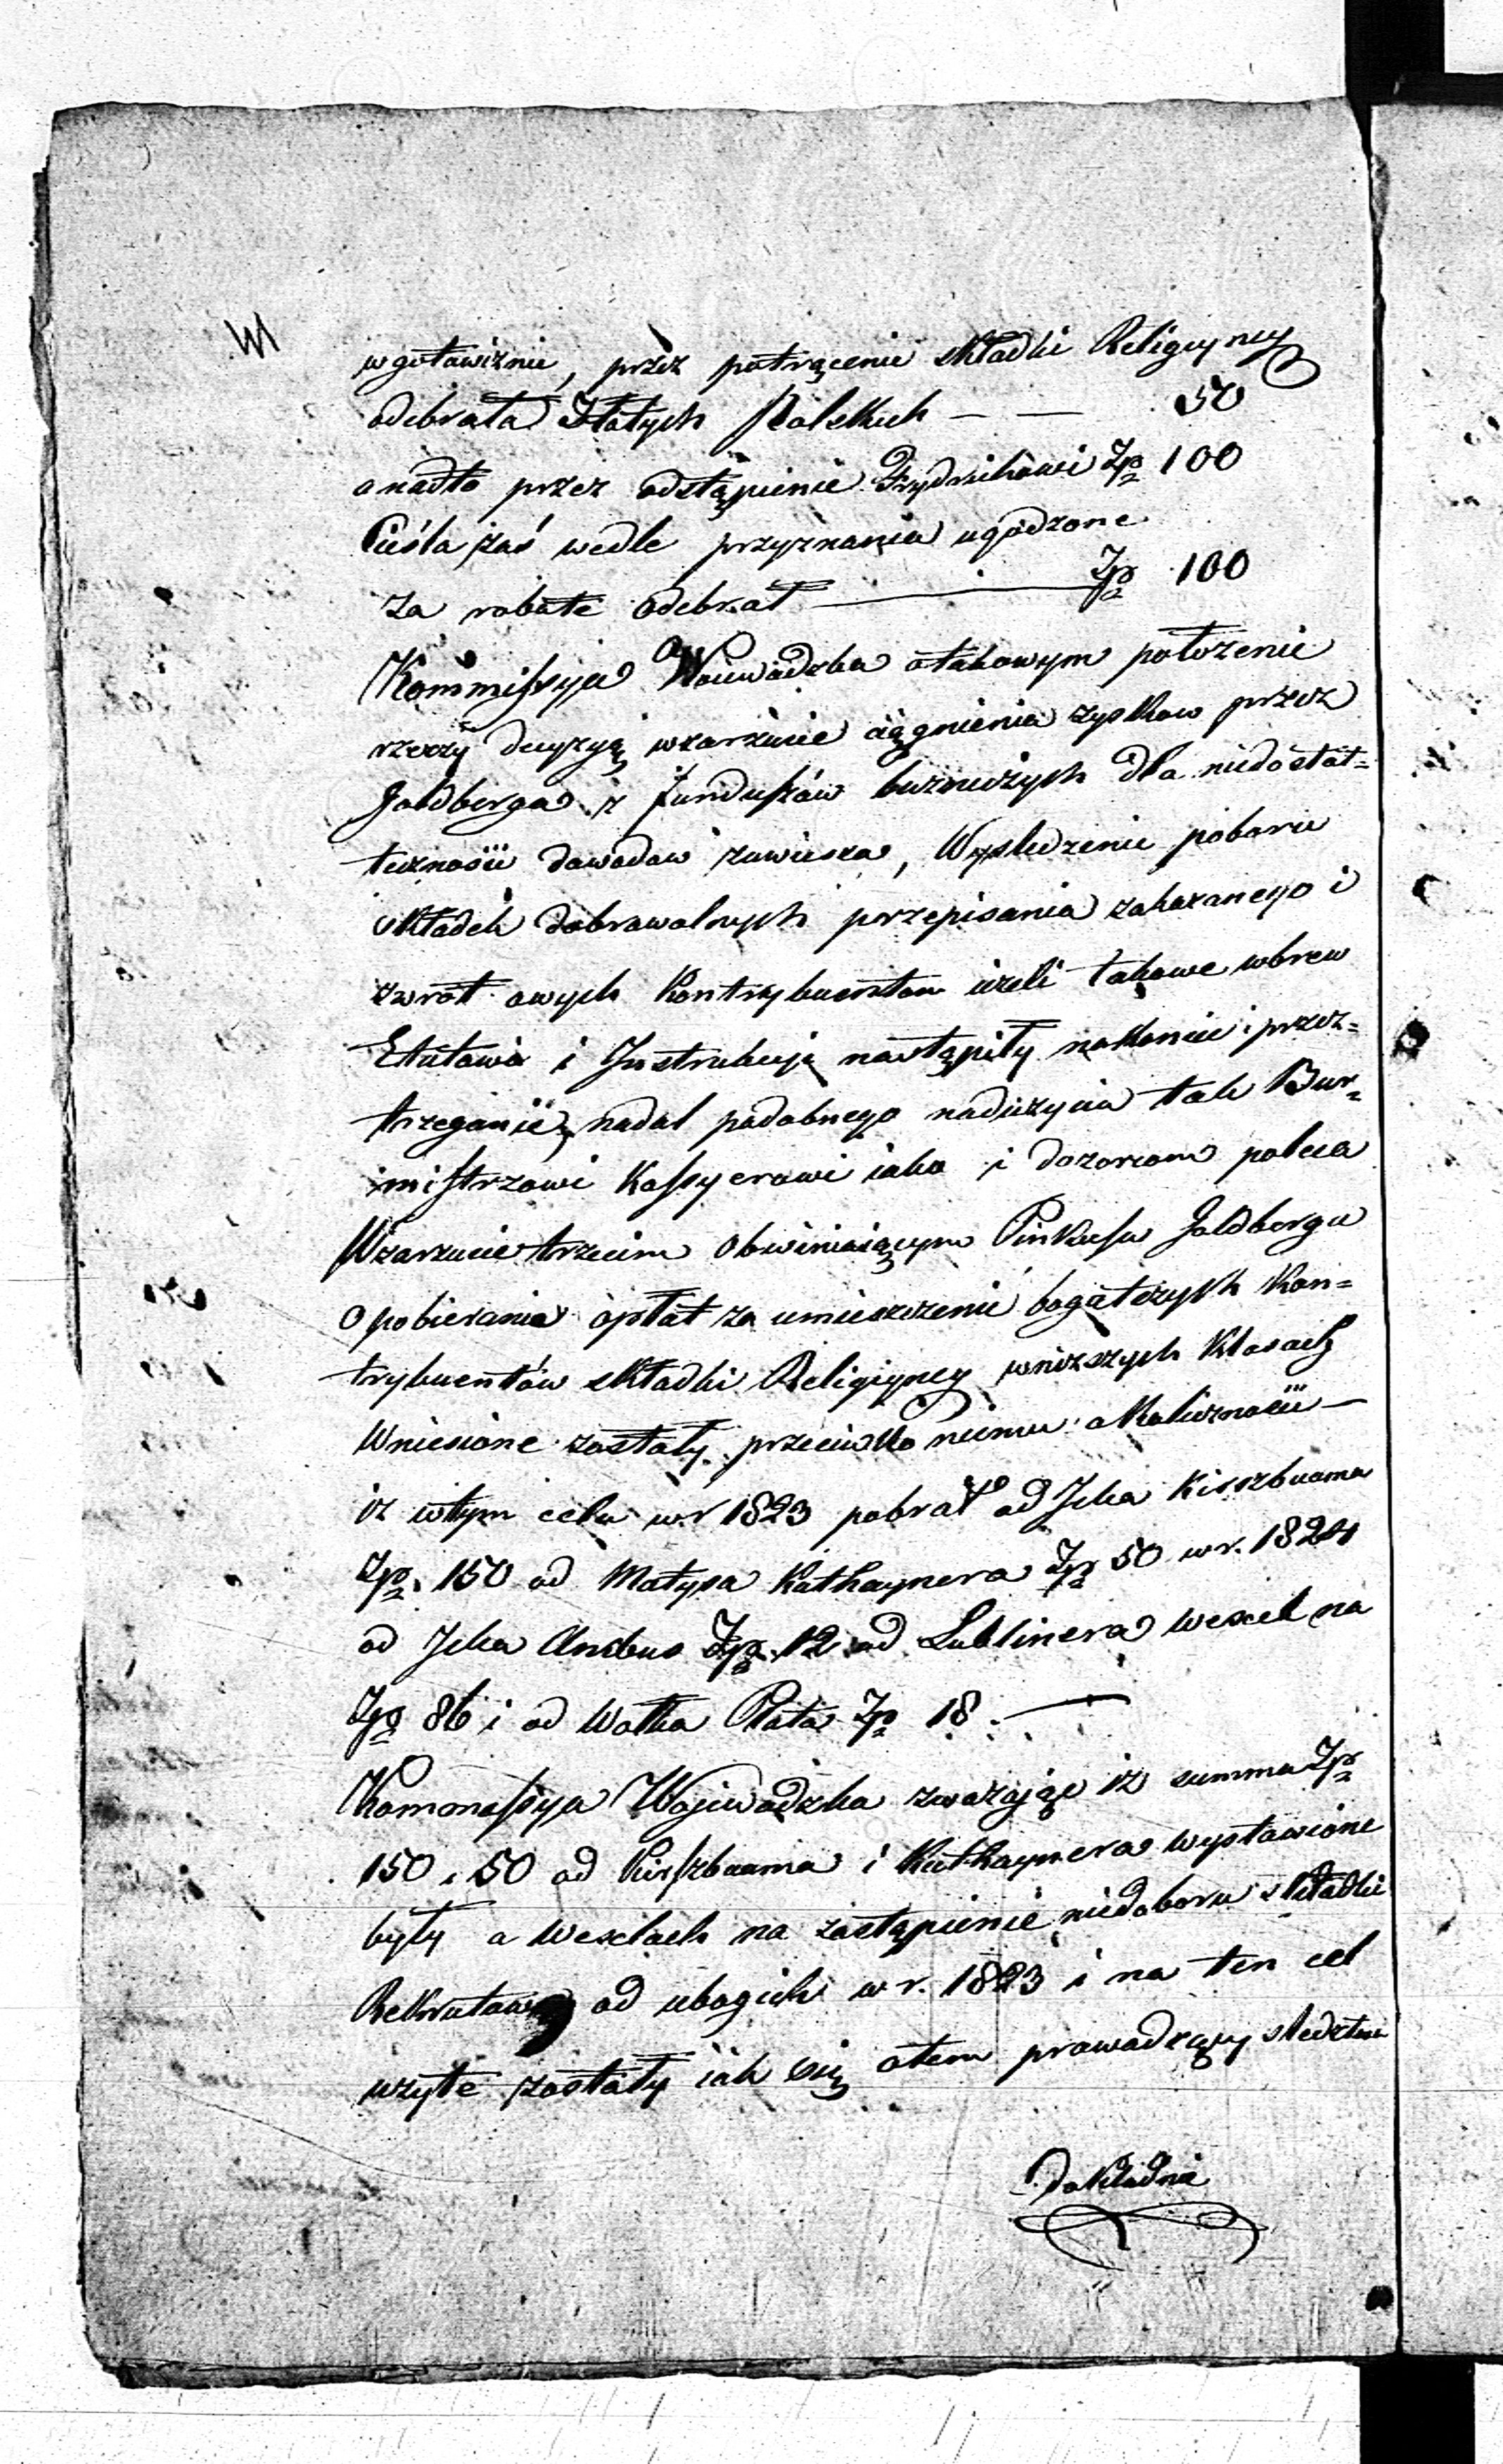 w gotowiznie, przez potrącenie składki Religiyney
odebrała Złotych Polskich — — 50
a nadto przez odstąpienie Frydrichowi Zp 100
Cieśla zaś wedle przyznania ugodzone
za robotę odebrał — Zp 100
Kommissya Woiewodzka o takowym położenie
rzeczy decyzyą w zarzucie ciągnienia zyskow przez
Goldberga z funduszów bużniczych dla niedostat=
teczności dowodow zawiesza, Wyśledzenie poboru
składek dobrowolnych przepisania zakazanego i
zwrot owych Kontrybuentom ieżeli takowe wbrew
Etatowi i Instrukcyi nastąpiły nakoniec i przes=
trzeganie nadal podobnego nadużycia tak Bur=
mistrzowi Kassyerowi iako i dozorcom poleca
W zarzucie trzecim obwiniaiącym Pinkusa Goldberga
o pobierania opłat za umieszczenie bogatszych Kon=
trybuentów składki Religiyney w niższych Klasach
Wniesione zostały przeciwko niemu okoliczności —
iż w tym celu w r. 1823 pobrał od Icka Kirszbuama
Zp. 150 od Matysa Kathaynera Zp 50 w r. 1824
od Icka Ambus Zp. 12 od Lublinera wexel na
Zp 86 i od Wolka Plata Zp 18. —
Kommissya Wojewodzka zważając iż summa Zp
150 i 50 od Kirszbauma i Kathaynera wystawione
były o wexlach na zastąpienie niedoboru składki
Rekrutowey od ubogich w r. 1823 i na ten cel
użyte zostały iak się o tem prowadzący śledztwo
Dokładnie